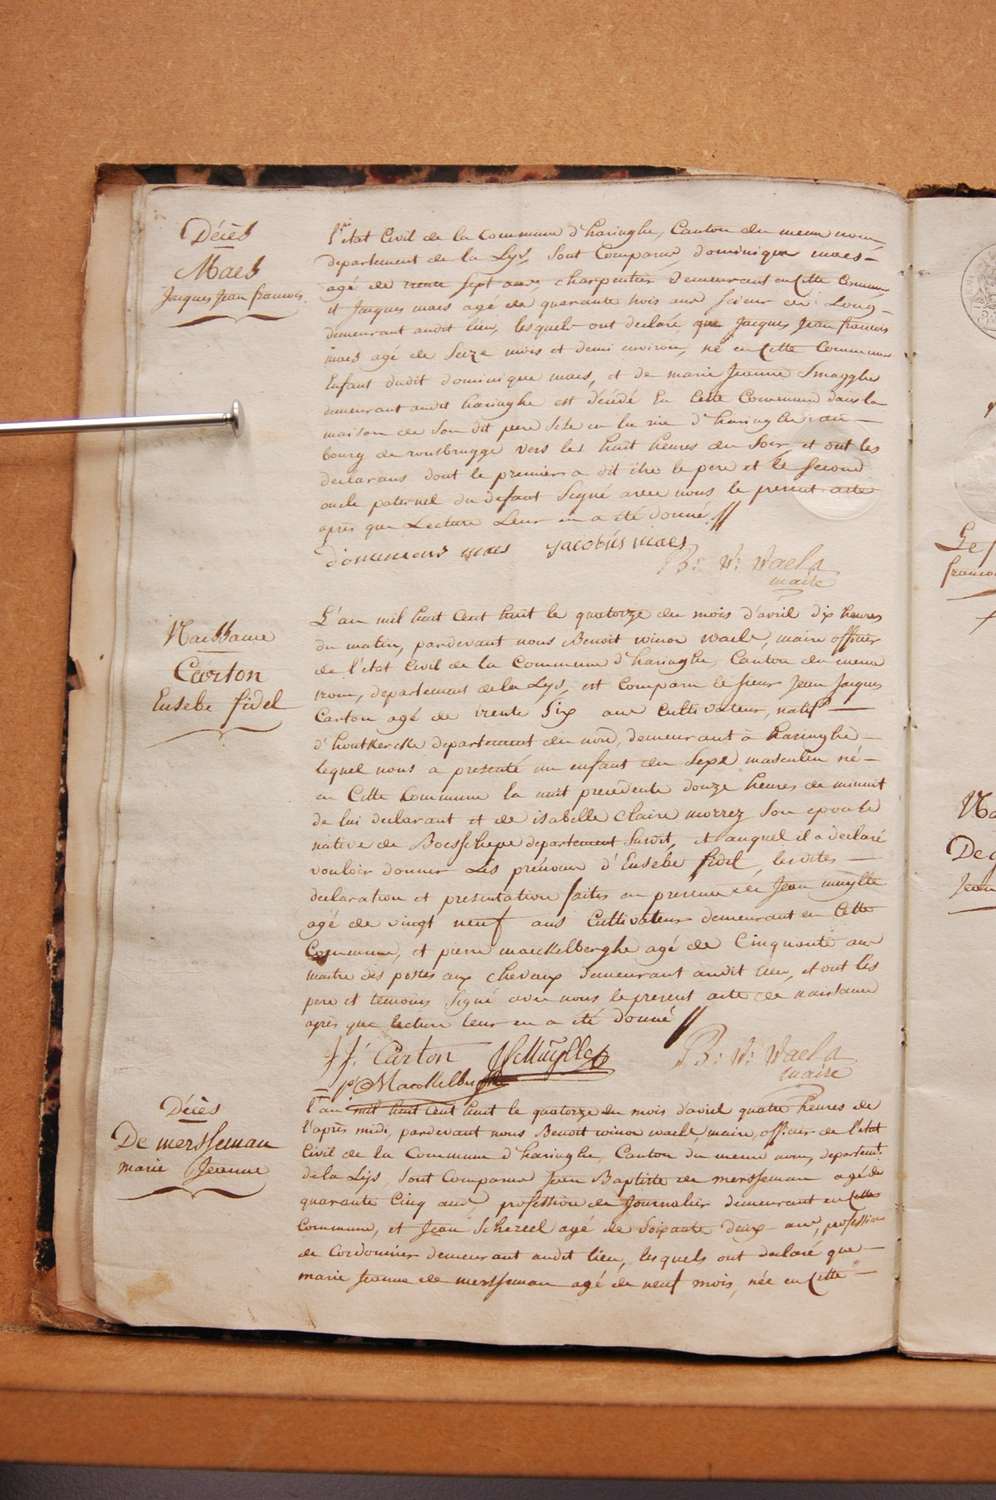 Décès
Maes
Jacques Jean francois
l'état Civil de la Commune d'haringhe, Canton du meme nom,
departement de la Lys, Sont Comparus dominique maes
agé de trente Sept ans charpentier demeurant en Cette Commune
et Jacques maes agé de quarante trois ans Scieur de Long
demeurant audit lieu, lesquels ont declaré que Jacques Jean francois
maes agé de Seize mois et demi environ, né en Cette Commune
Enfant dudit dominique maes, et de marie Jeanne Smagghe
demeurant audit haringhe est décédé En Cette Commune dans la
maison de Son dit pere Sise en la rue d'haringhe au
bourg de rousbrugge vers les huit heures du Soir et ont les
declarans dont le premier a dit être le pere et le Second
oncle paternel du defunt Signé avec nous le present acte
après que Lecture Leur en a été donné //
dominicus maes Jacobus maes
B: W: Waels
maire
Naissance
Carton
Eusebe fidel
L'an mil huit Cent huit le quatorze du mois d'avril dix heures
du matin, pardevant nous Benoit winoc waels, maire officier
de l'état Civil de la Commune d'haringhe, Canton du meme
nom, departement de la Lys, est Comparu le Sieur Jean Jacques
Carton agé de trente Six ans Cultivateur, natif
d'houtkercke departement du nord, demeurant à haringhe
lequel nous a presenté un enfant du Sexe masculin né
en Cette Commune la nuit precedente douze heures de minuit
de lui declarant et de isabelle Claire morrez Son epouse
native de Boesschepe departement Susdit, et auquel il a declaré
vouloir donner Les prénoms d'Eusebe fidel, lesdites
declaration et presentation faites en presence de Jean muylle
agé de vingt neuf ans Cultivateur demeurant en Cette
Commune, et pierre maeckelberghe agé de Cinquante ans
maitre des postes aux chevaux demeurant audit lieu, et ont les
pere et temoins Signé avec nous le present acte de naissance
après que lecture leur en a été donné //
J. J. Carton J Muylle
P Maeckelberghe
B: W: Waels
maire
Décès
De mersseman
marie Jeanne
l'an mil huit Cent huit le quatorze du mois d'avril quatre heures de
l'après midi, pardevant nous Benoit winoc waels, maire, officier de l'état
Civil de la Commune d'haringhe, Canton du meme nom, departemt.
de la Lys, Sont Comparus Jean Baptiste de mersseman agé de
quarante Cinq ans, profession de Journalier demeurant en Cette
Commune, et Jean Schereel agé de Soixante deux ans, profession
de Cordonnier demeurant audit lieu, lesquels ont declaré que
marie Jeanne de mersseman agé de neuf mois, née en Cette